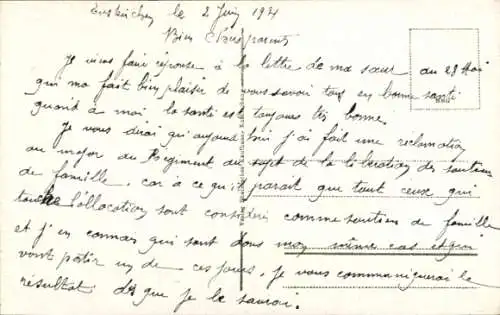 Euskirchen le 2 Juin 1921
Bien Chers parents
Je viens faire réponse à la lettre de ma sœur du 28 Mai
qui ma fait bien plaisir de vous savoir tous en bonne santé
quand à moi la santé est toujours très bonne.
Je vous dirai qu'aujourd'hui j'ai fait une réclamation
au major du Régiment au sujet de la libération des soutiens
de famille, car à ce qu'il parait que tout ceux qui
touche l'allocation sont considéré comme soutien de famille
et j'en connais qui sont dans mon même cas et qui
vont partir un de ces jours, je vous communiquerai le
résultat dès que je le saurai.